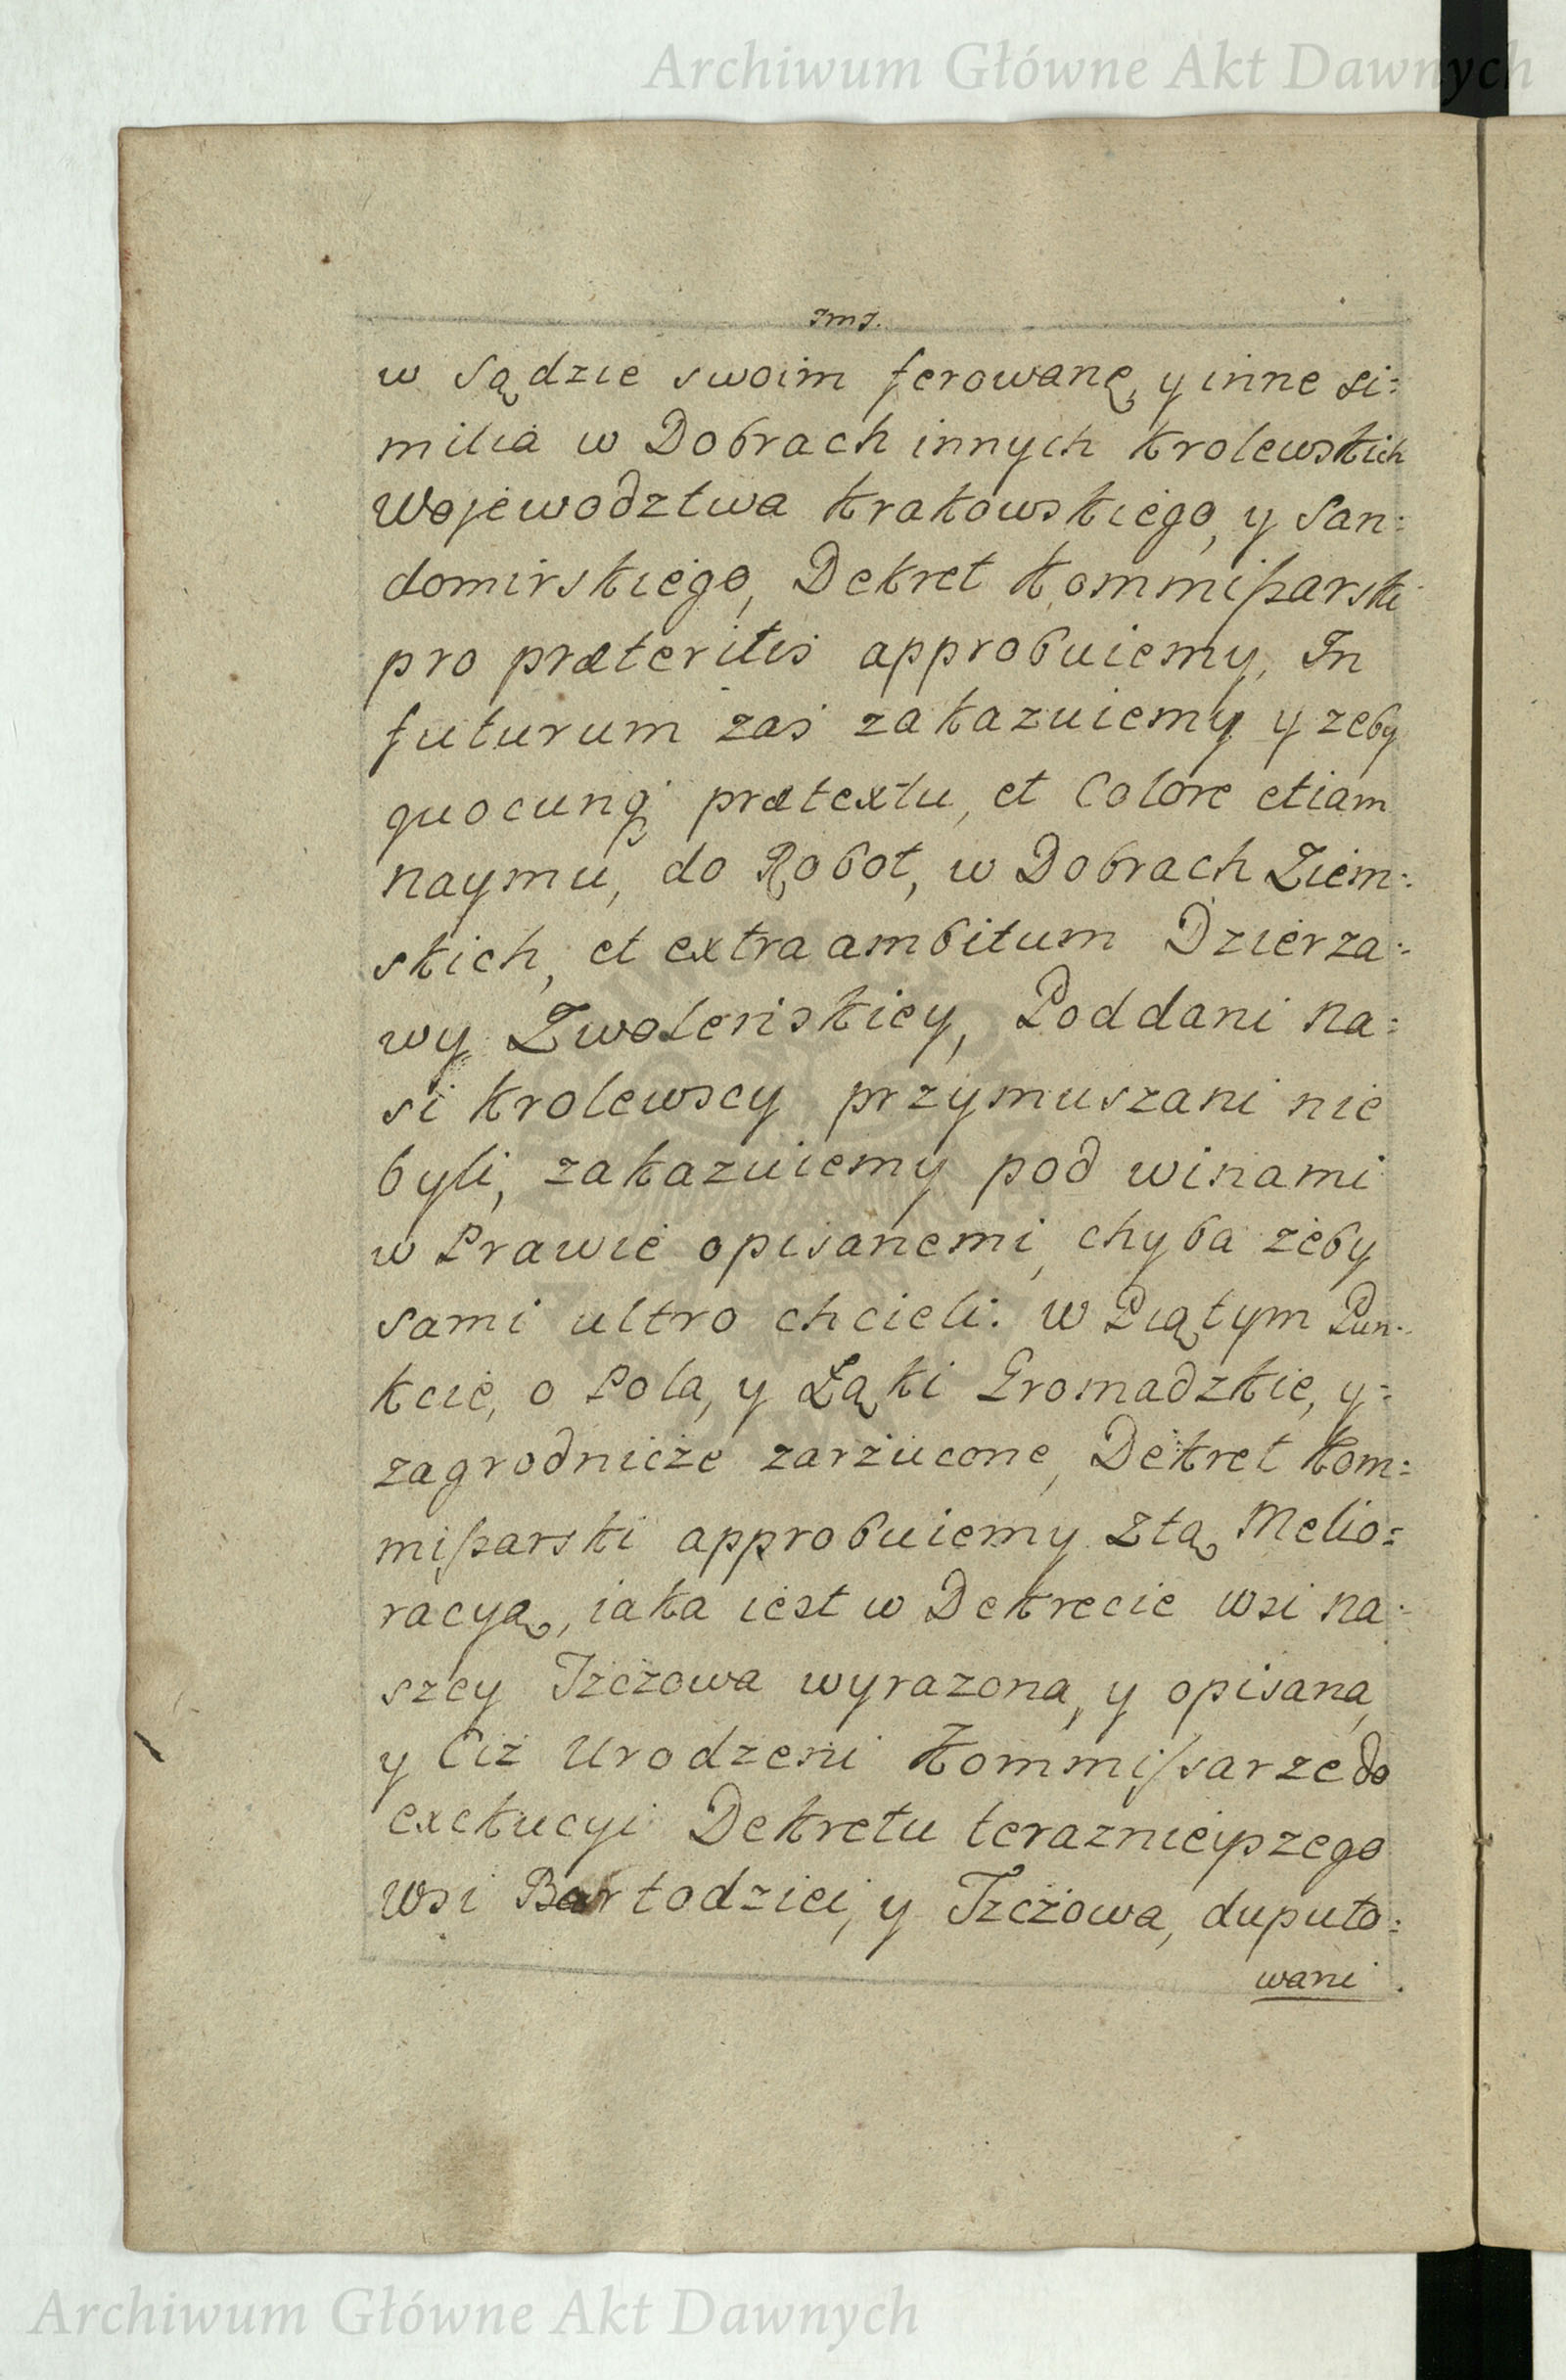 Archiwum Główne Akt Dawnych
w sądzie swoim ferowanę, y inne si:
milia w Dobrach innych Krolewskich
Wojewodztwa Krakowskiego, y San:
domirskiego, Dekret Kommißarski
pro præteritis approbuiemy, In
futurum zas zakazuiemy y zeby
quocunq prætextu, et Colore etiam
naymu, do Robot, w Dobrach Ziem:
skich, et extra ambitum Dzierza:
wy Zwoleńskiey, Poddani na:
si Krolewscy przymuszani nie
byli, zakazuiemy pod winami
w Prawie opisanemi, chyba żeby
sami ultro chcieli: w Piątym Pun:
kcie, o Pola, y Łąki Gromadzkie, y=
zagrodnicze zarzucone, Dekret Kom:
mißarski approbuiemy ztą Melio=
racyą, iaka iest w Dekrecie wsi na:
szey Tzczowa wyrazona, y opisana,
y Ciż Urodzeni Kommißsarze do
exekucyi Dekretu terazniejszego
Wsi Bartodziei, y Tzczowa, duputo:
wani
Archiwum Główne Akt Dawnych